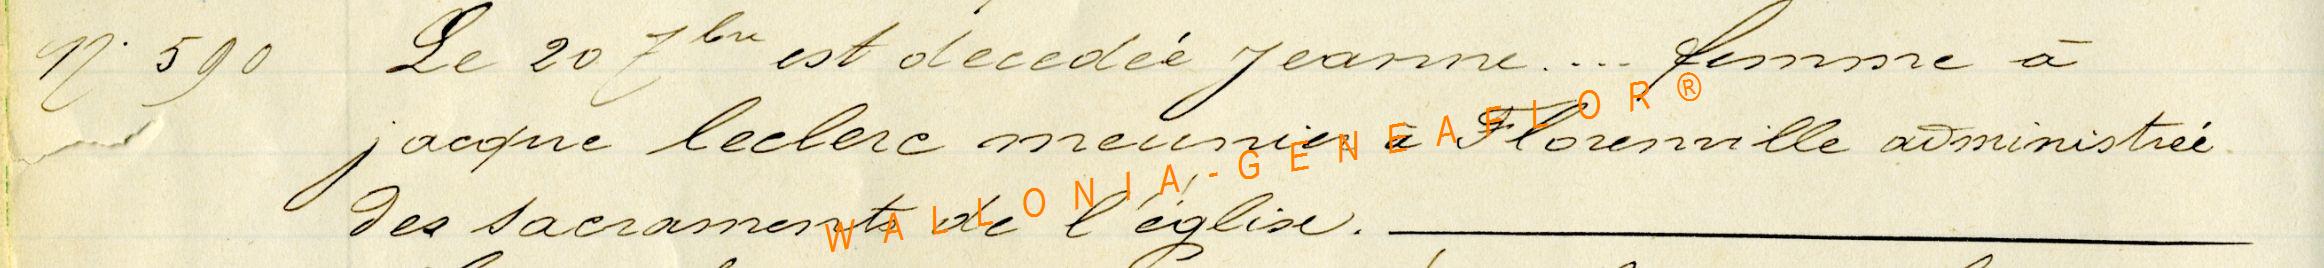 N° 590 Le 20 7bre est decedée jeanne.... femme à
jacque leclerc meunier à Florenville administrée
des sacraments de l'église.
WALLONIA-GENEAFLOR®